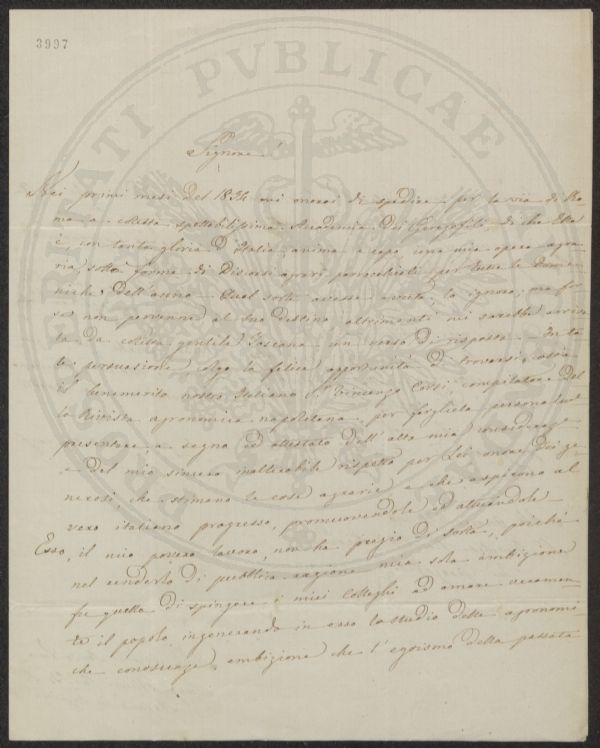 3997
PROSPERITATI PVBLICAE
Signore!
Nei primi mesi del 1834 mi onorai di spedire per la via di Ro
ma a codesta spettabilissima Accademia dei Georgofili, di che Ella
è con tanta gloria d'Italia, anima e capo una mia opera agra
ria, sotto forma di Discorsi agrari parrocchiali per tutte le Dome
niche dell'anno. Qual sorte avesse avuto, lo ignoro; ma for
se non pervenne al suo destino, altrimenti mi sarebbe arriva
ta da codesta gentile Toscana un verso di risposta. In ta
le persuasione colgo la felice opportunità di trovarsi costà
il benemerito nostro Italiano S. Vincenzo Corsi compilatore del
la Rivista agronomica napoletana per fargliela personalmente
presentare, a segno ed attestato dell'alta mia considerazione
e del mio sincero inalterabile rispetto per Lei onore dei ge
nerosi, che stimano le cose agrarie e che aspirano al
vero italiano progresso, promuovendole ed attuandole
Esso, il mio povero lavoro, non ha pregio di sorta, poiché
nel renderlo di pubblica ragione mia sola ambizione
fu quella di spingere i miei Colleghi ad amare veramen
te il popolo, ingenerando in esso lo studio delle agronomi
che conoscenze, ambizione che l'egoismo della passata